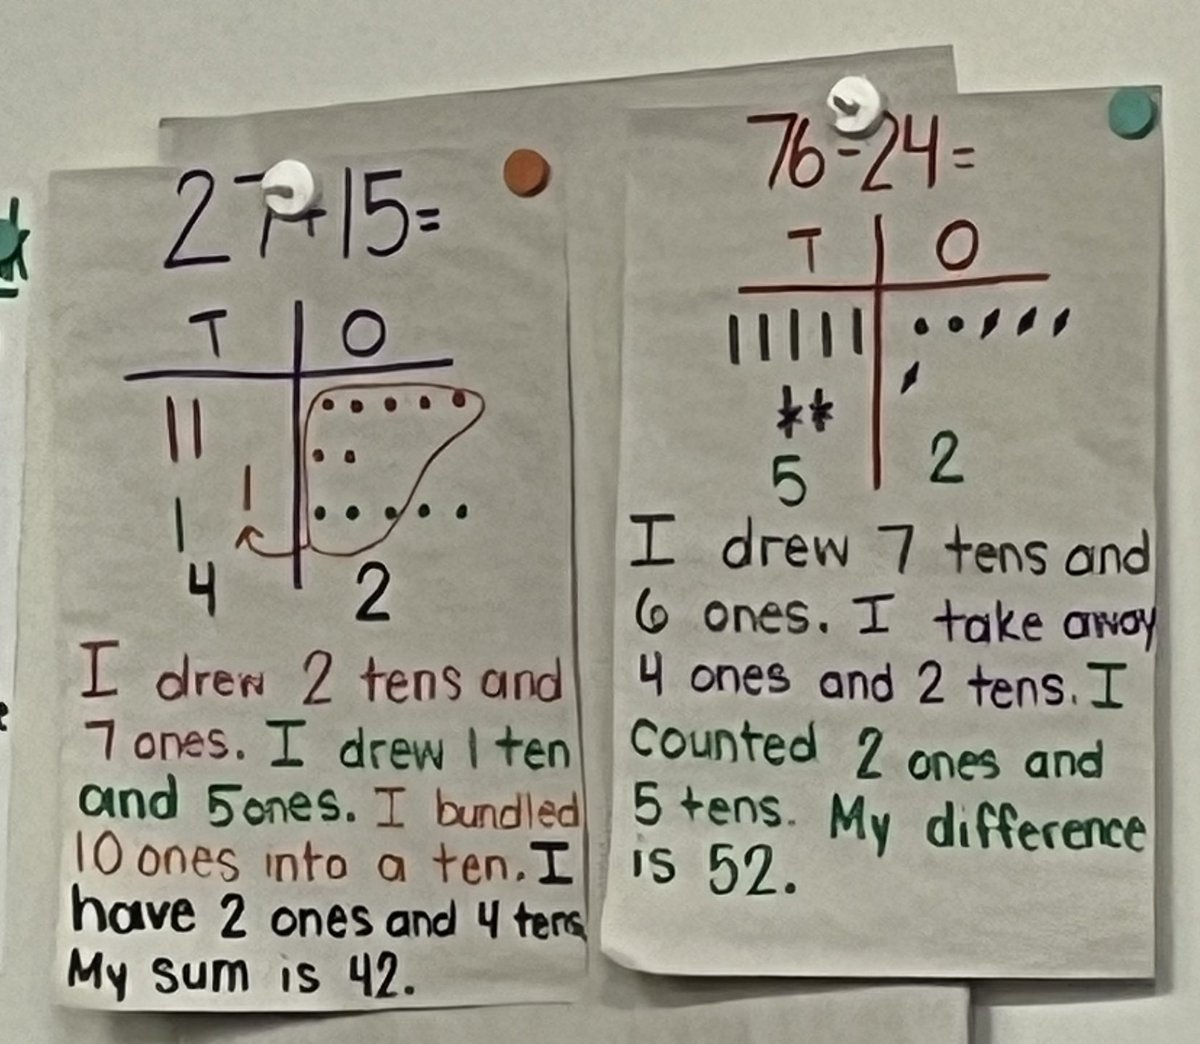 27+15=
T O
4 2
I drew 2 tens and
7 ones. I drew 1 ten
and 5 ones. I bundled
10 ones into a ten. I
have 2 ones and 4 tens
My sum is 42.
76-24=
T O
5 2
I drew 7 tens and
6 ones. I take away
4 ones and 2 tens. I
counted 2 ones and
5 tens. My difference
is 52.